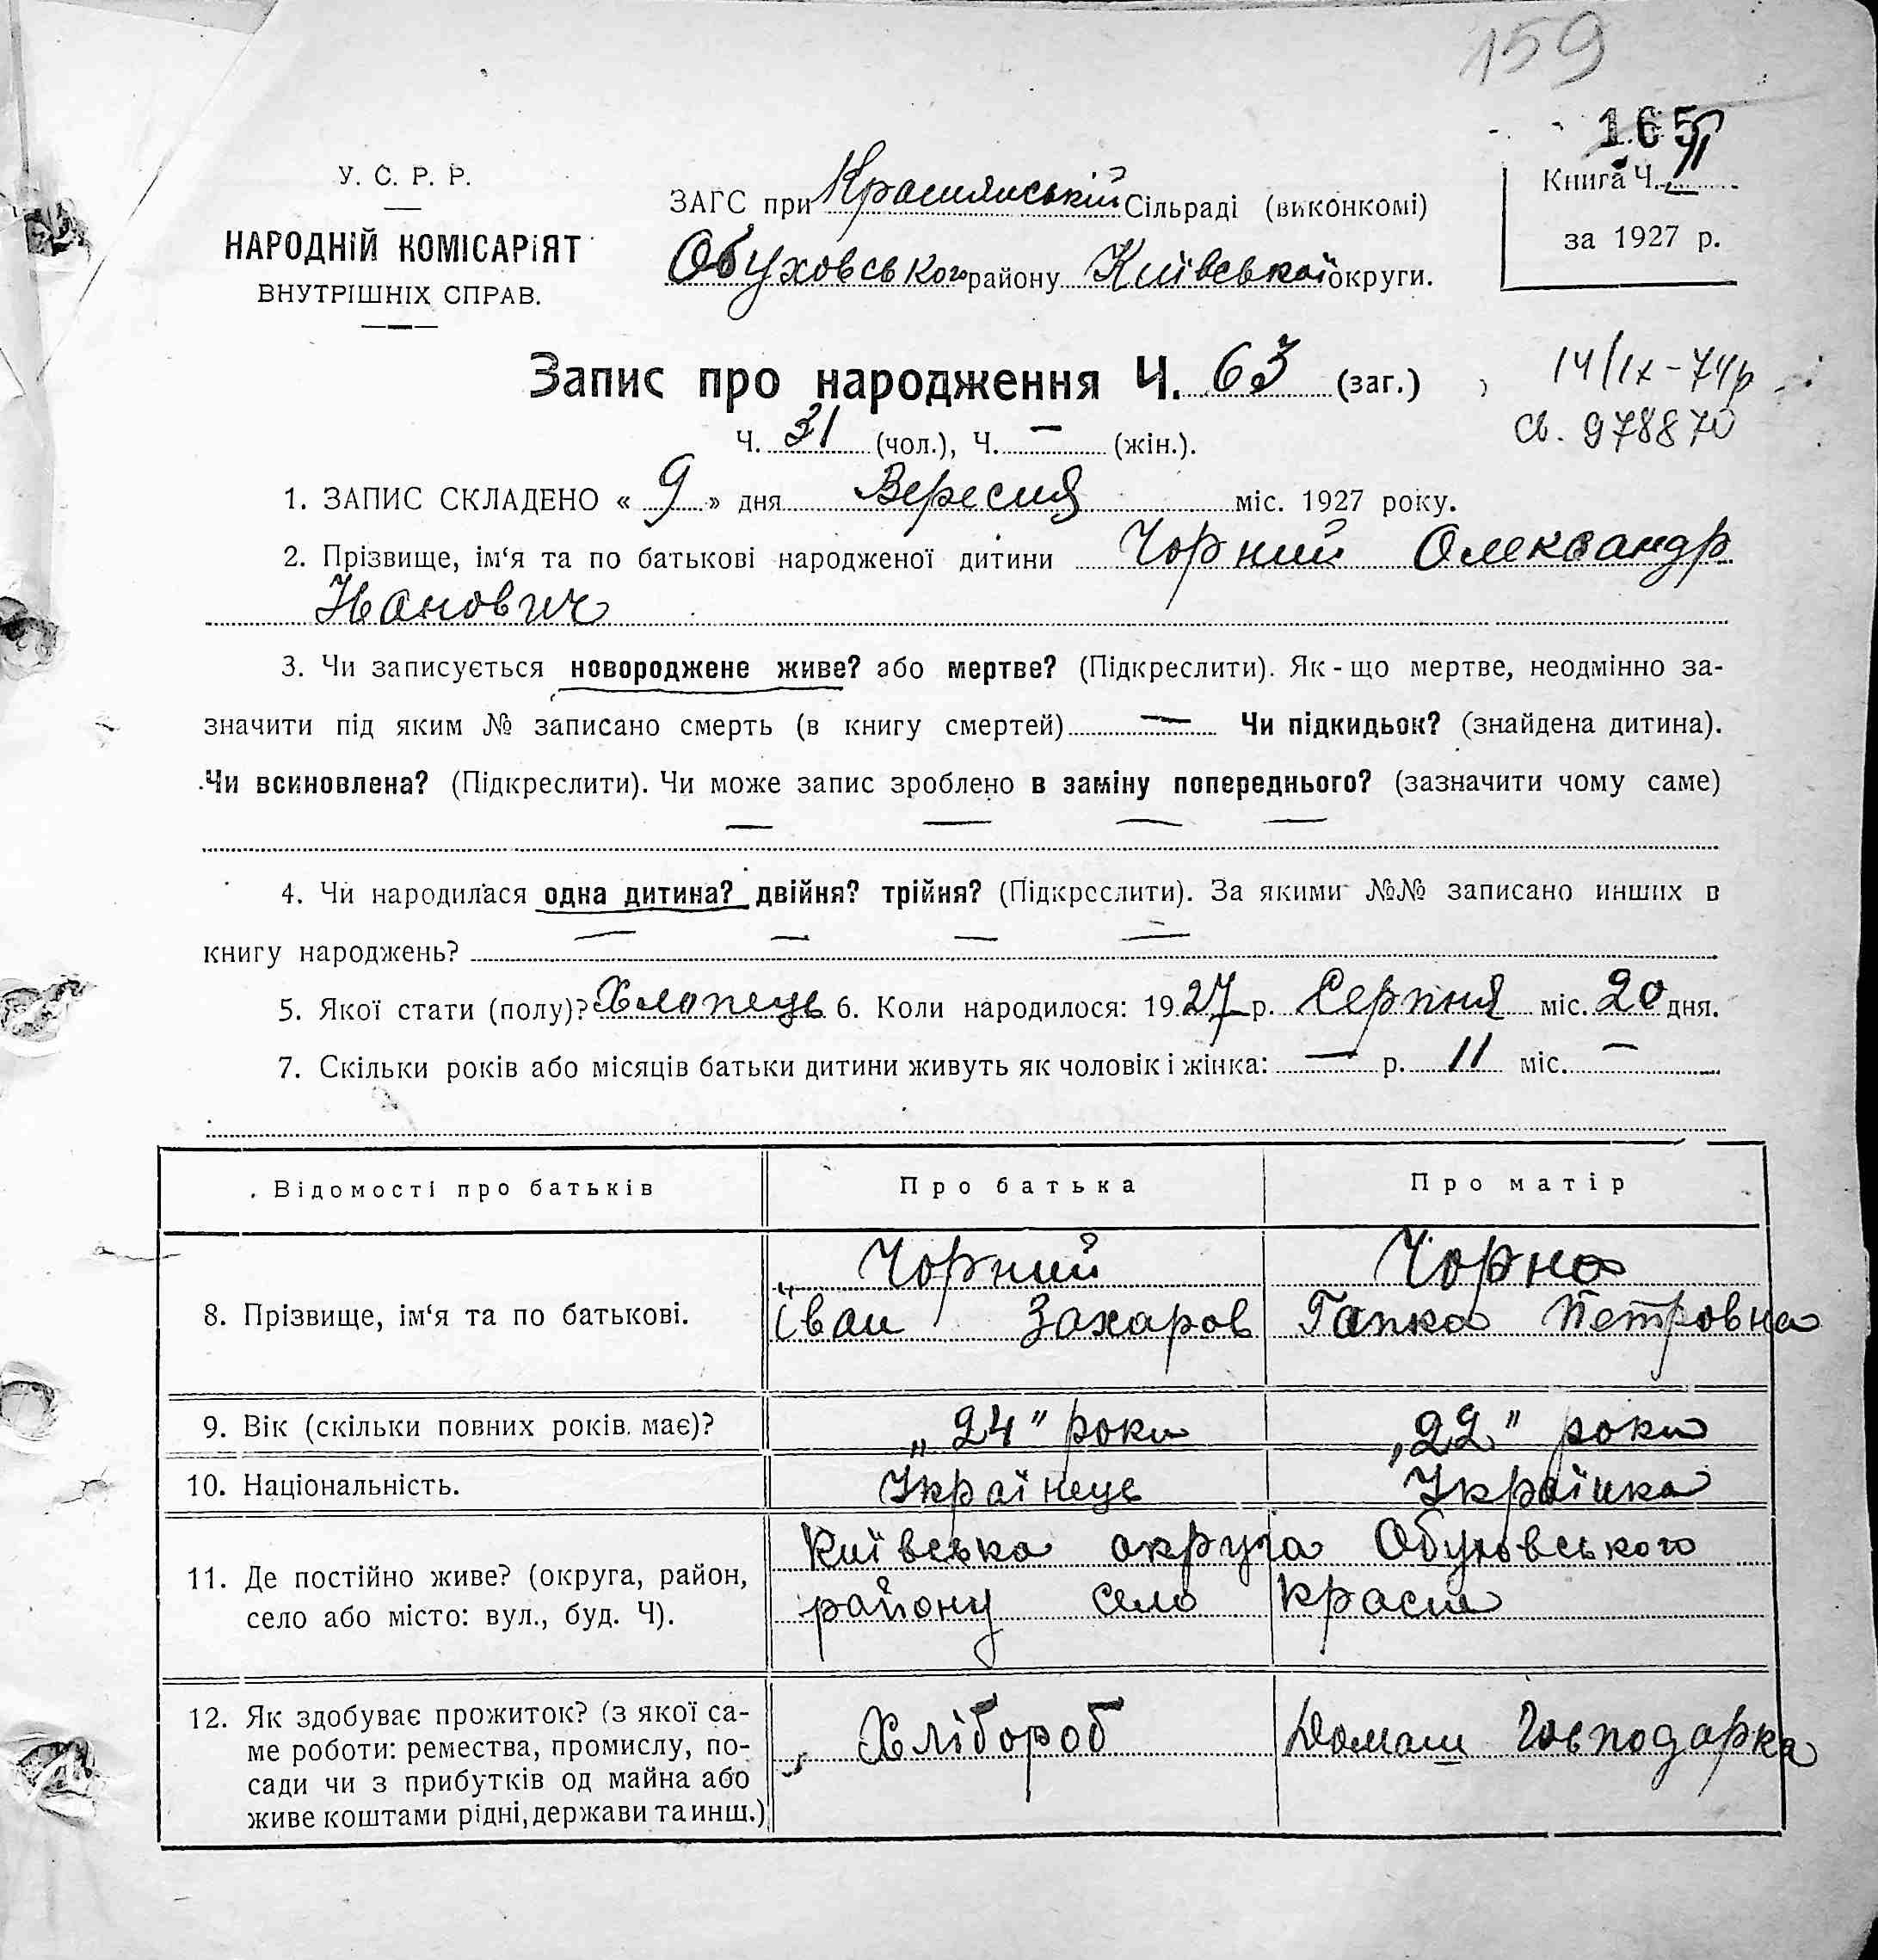 159
165
У. С. Р. Р.
НАРОДНІЙ КОМІСАРІЯТ
ВНУТРІШНІХ СПРАВ.
ЗАГС при Краснянській Сільраді (виконкомі)
Обуховського району Київської округи.
Книга Ч. II
за 1927 р.
Запис про народження Ч. 63 (заг.)
14/IX-74р
Ч. 31 (чол.), Ч. — (жін.).
св. 978870
1. ЗАПИС СКЛАДЕНО « 9 » дня Вересня міс. 1927 року.
2. Прізвище, ім‘я та по батькові народженої дитини Чорний Олександр
Іванович
3. Чи записується новороджене живе? або мертве? (Підкреслити). Як-що мертве, неодмінно за-
значити під яким № записано смерть (в книгу смертей) — Чи підкидьок? (знайдена дитина).
Чи всиновлена? (Підкреслити). Чи може запис зроблено в заміну попереднього? (зазначити чому саме)
— — — —
4. Чи народилася одна дитина? двійня? трійня? (Підкреслити). За якими №№ записано инших в
книгу народжень? — — — —
5. Якої стати (полу)? Хлопець 6. Коли народилося: 1927 р. Серпня міс. 20 дня.
7. Скільки років або місяців батьки дитини живуть як чоловік і жінка: — р. 11 міс. —
Відомості про батьків
Про батька
Про матір
8. Прізвище, ім‘я та по батькові.
Чорний
Іван Захаров
Чорна
Гапка Петровна
9. Вік (скільки повних років має)?
„24" роки
„22" роки
10. Національність.
Українець
Українка
11. Де постійно живе? (округа, район,
село або місто: вул., буд. Ч).
Київська округа Обуховського
району село Красне
12. Як здобуває прожиток? (з якої са-
ме роботи: ремества, промислу, по-
сади чи з прибутків од майна або
живе коштами рідні, держави та инш.)
Хлібороб
Домаш Господарка